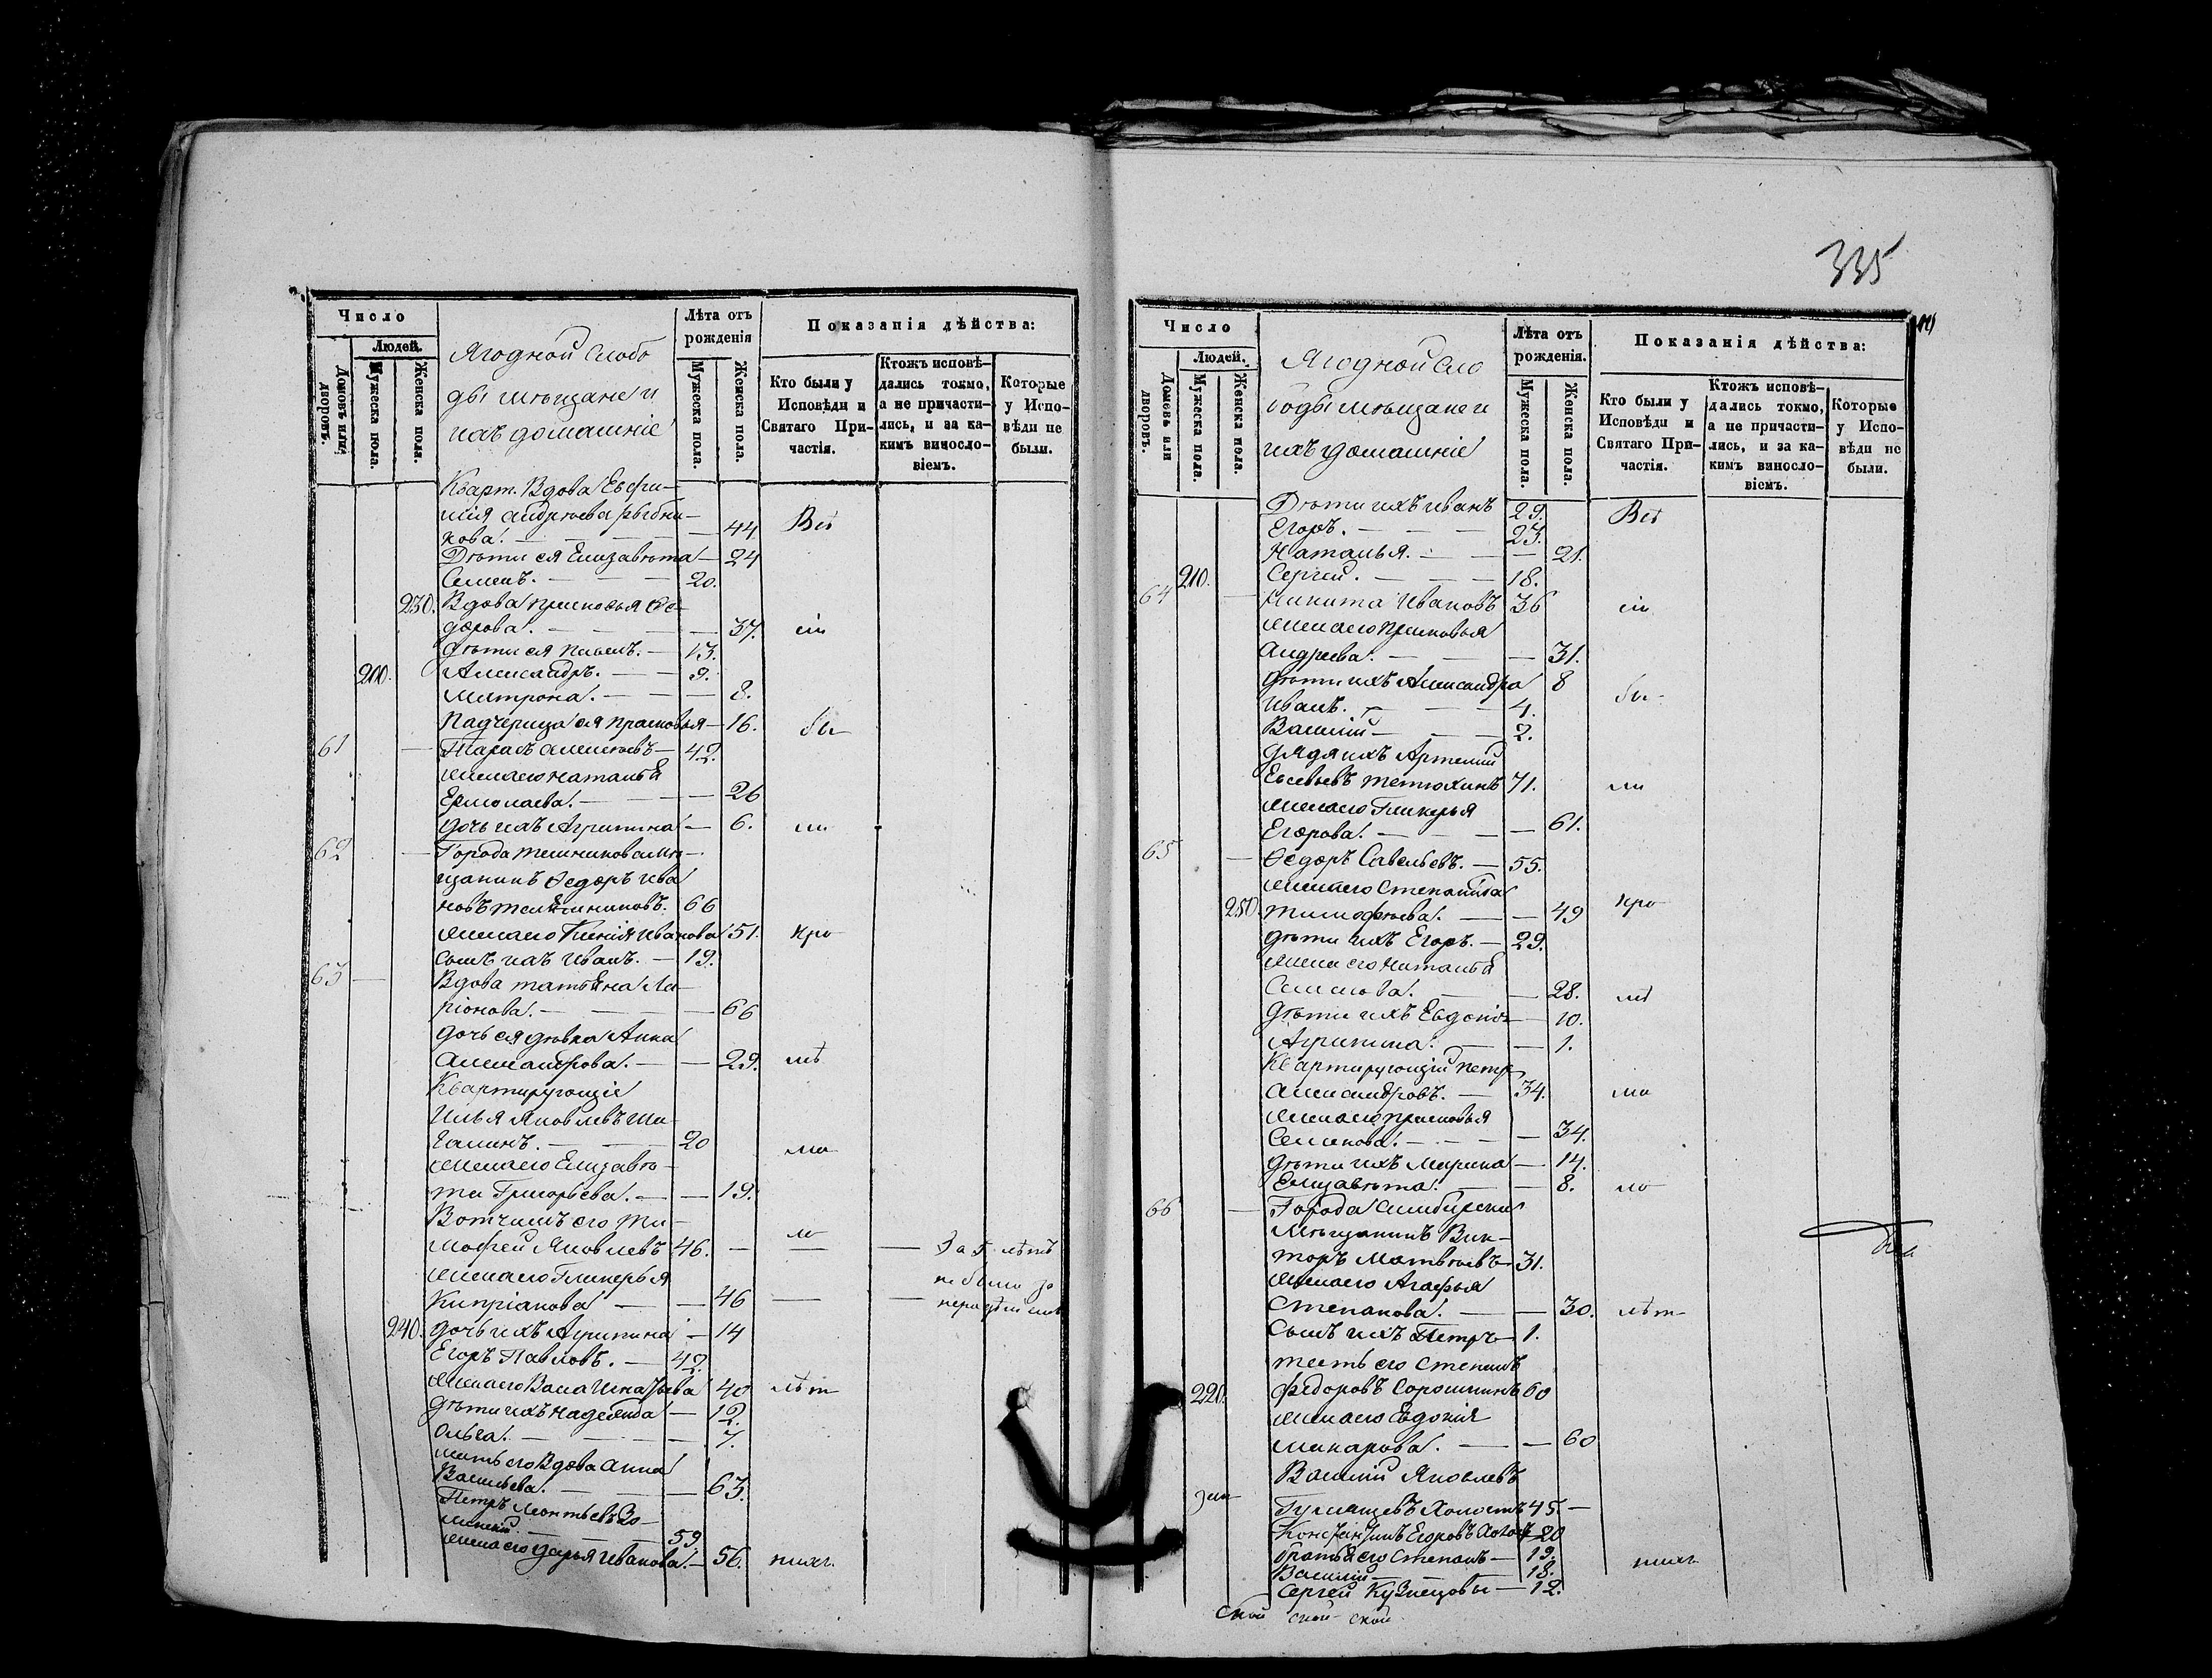 Число
Людей.
Домовъ или дворовъ.
Мужеска пола.
Женска пола.
Ягодной слобо
ды мѣщане и
ихъ домашніе
Лѣта отъ рожденія
Мужеска пола.
Женска пола.
Показанія дѣйства:
Кто были у Исповѣди и Святаго При- частія.
Ктожъ исповѣ- дались токмо, а не причасти- лись, и за ка- кимъ виносло- віемъ.
Которые у Испо- вѣди не были.
Кварт. Вдова Евфи-
мія Андреева Рыбни-
кова. — 44 Всѣ
Дѣти ея Елизавѣта — 24
Семенъ. — 20.
230. Вдова Прасковья Ѳе-
дорова. — 37. сіи
Дѣти ея Павелъ. — 13.
200. Александръ. — 9.
Матрона. — 8.
Падчерица ея Прасковья — 16. бы
61 — Тарасъ Алексѣевъ — 42.
жена его Наталья
Ермолаева. — 26
дочь ихъ Агрипина — 6. ли
62 — Города Темникова мѣ-
щанинъ Ѳедоръ Ива
новъ 66
жена его Ксенія Иванова 51. при
сынъ ихъ Иванъ. — 19.
63 — Вдова Татьяна Ла-
ріонова. — 66
дочь ея дѣвка Анна
Александрова. — 29. мѣ
Квартирующіе
Илья Яковлевъ Ша
галинъ. — 20
жена его Елизавѣ- ма
та Григорьева. — 19.
Вотчимъ его Ти-
мофей Яковлевъ 46. — ло — За 5 лѣтъ
жена его Гликерья не были за
Кипріанова — 46 — нерадѣніемъ
240. дочь ихъ Агрипина — 14
Егоръ Павловъ. — 42.
жена его Васса Игнатьева 40 лѣт
дѣти ихъ Надежда — 12.
Ольга. — 7.
мать его Вдова Анна
Васильева. — 63.
Петръ Леонтьевъ Зо-
59.
жена его Дарья Иванова. — 56. нихъ
335
Число
Людей.
Домовъ или дворовъ.
Мужеска пола.
Женска пола.
Ягодной сло
боды мѣщане и
ихъ домашніе
Лѣта отъ рожденія.
Мужеска пола.
Женска пола.
Показанія дѣйства:
Кто были у Исповѣди и Святаго При- частія.
Ктожъ исповѣ- дались токмо, а не причасти- лись, и за ка- кимъ виносло- віемъ.
Которые у Испо- вѣди не были.
Дѣти ихъ Иванъ 29. Всѣ
Егоръ. — 23.
Наталья. — 21.
210. Сергей. — 18.
64 — Никита Ивановъ 36 сіи
жена его Прасковья
Андреева. — 31.
дѣти ихъ Александра 8 бы-
Иванъ. — 4.
Василій — 2.
дядя ихъ Артемій
Евсевьевъ Тетюхинъ 71. ли
жена его Гликерья
Егорова. — 61.
65 — Ѳедоръ Савельевъ. — 55.
жена его Степанида
250. Тимофѣева. — 49 при
дѣти ихъ Егоръ. — 29.
жена его Наталья
Семенова. — 28. мѣ
дѣти ихъ Евдокія — 10.
Агрипина. — 1.
Квартирующій Петръ
Александровъ. — 34. ма
жена его Прасковья
Семенова. — 34.
дѣти ихъ Марина — 14.
Елизавѣта. — 8. ло
66 — Города Симбирска
мѣщанинъ Вик-
торъ Матвѣевъ 31.
жена его Агафья
Степанова. — 30. лѣт
сынъ ихъ Петръ 1.
тесть его Степанъ
220. Ѳедоровъ Сорокинъ 60
жена его Евдокія
Макарова. — 60
Василій Яковлевъ
Холостъ 45. —
Константинъ Егоровъ холостъ 20
братья его Степанъ — 19. нихъ
Василій — 18.
Сергей Кузнецовы — 12.
ской ской ской